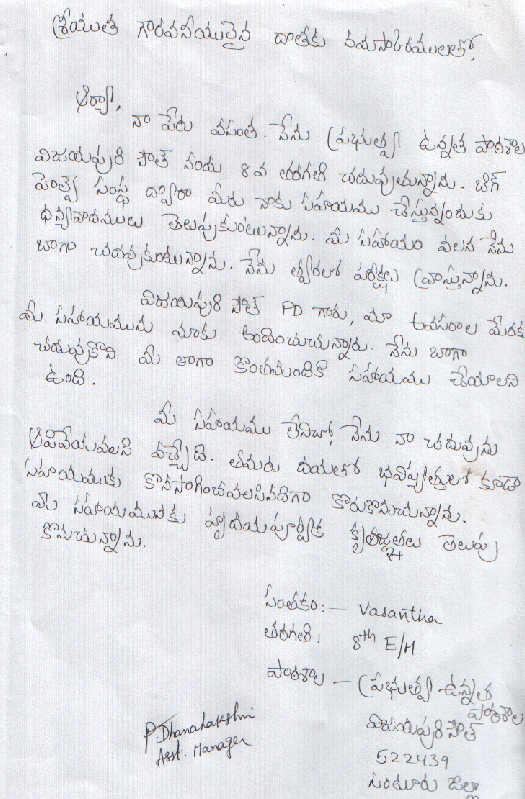 శ్రీయుత గౌరవనీయులైన దాతకు నమస్కారములతో,
ఆర్యా,
నా పేరు వసంత. నేను ప్రభుత్వ ఉన్నత పాఠశాల
విజయపురి సౌత్ నందు 8వ తరగతి చదువుతున్నాను.
సంస్థ ద్వారా మీరు నాకు సహాయము చేస్తున్నందుకు
ధన్యవాదములు తెలుపుకుంటున్నాను. మీ సహాయం వలన నేను
బాగా చదువుకుంటున్నాను. నేను త్వరలో పరీక్షలు వ్రాస్తున్నాను.
విజయపురి సౌత్ PD గారు, మా అవసరాల మేరకు
మీ సహాయమును మాకు అందించుచున్నారు. నేను బాగా
చదువుకొని మీ లాగా కొంతమందికి సహాయము చేయాలని
ఉంది.
మీ సహాయము లేనిచో, నేను నా చదువును
ఆపివేయవలసి వచ్చేది. తమరు దయతో భవిష్యత్తులో కూడా
సహాయమును కొనసాగించవలసినదిగా కోరుకొనుచున్నాను.
మీ సహాయమునకు హృదయపూర్వక కృతజ్ఞతలు తెలుపు
కొనుచున్నాను.
సంతకం:- Vasantha
తరగతి: 8th E/M
పాఠశాల - ప్రభుత్వ ఉన్నత
పాఠశాల
విజయపురి సౌత్
522439
గుంటూరు జిల్లా
P. Dhanalakshmi
Asst. Manager